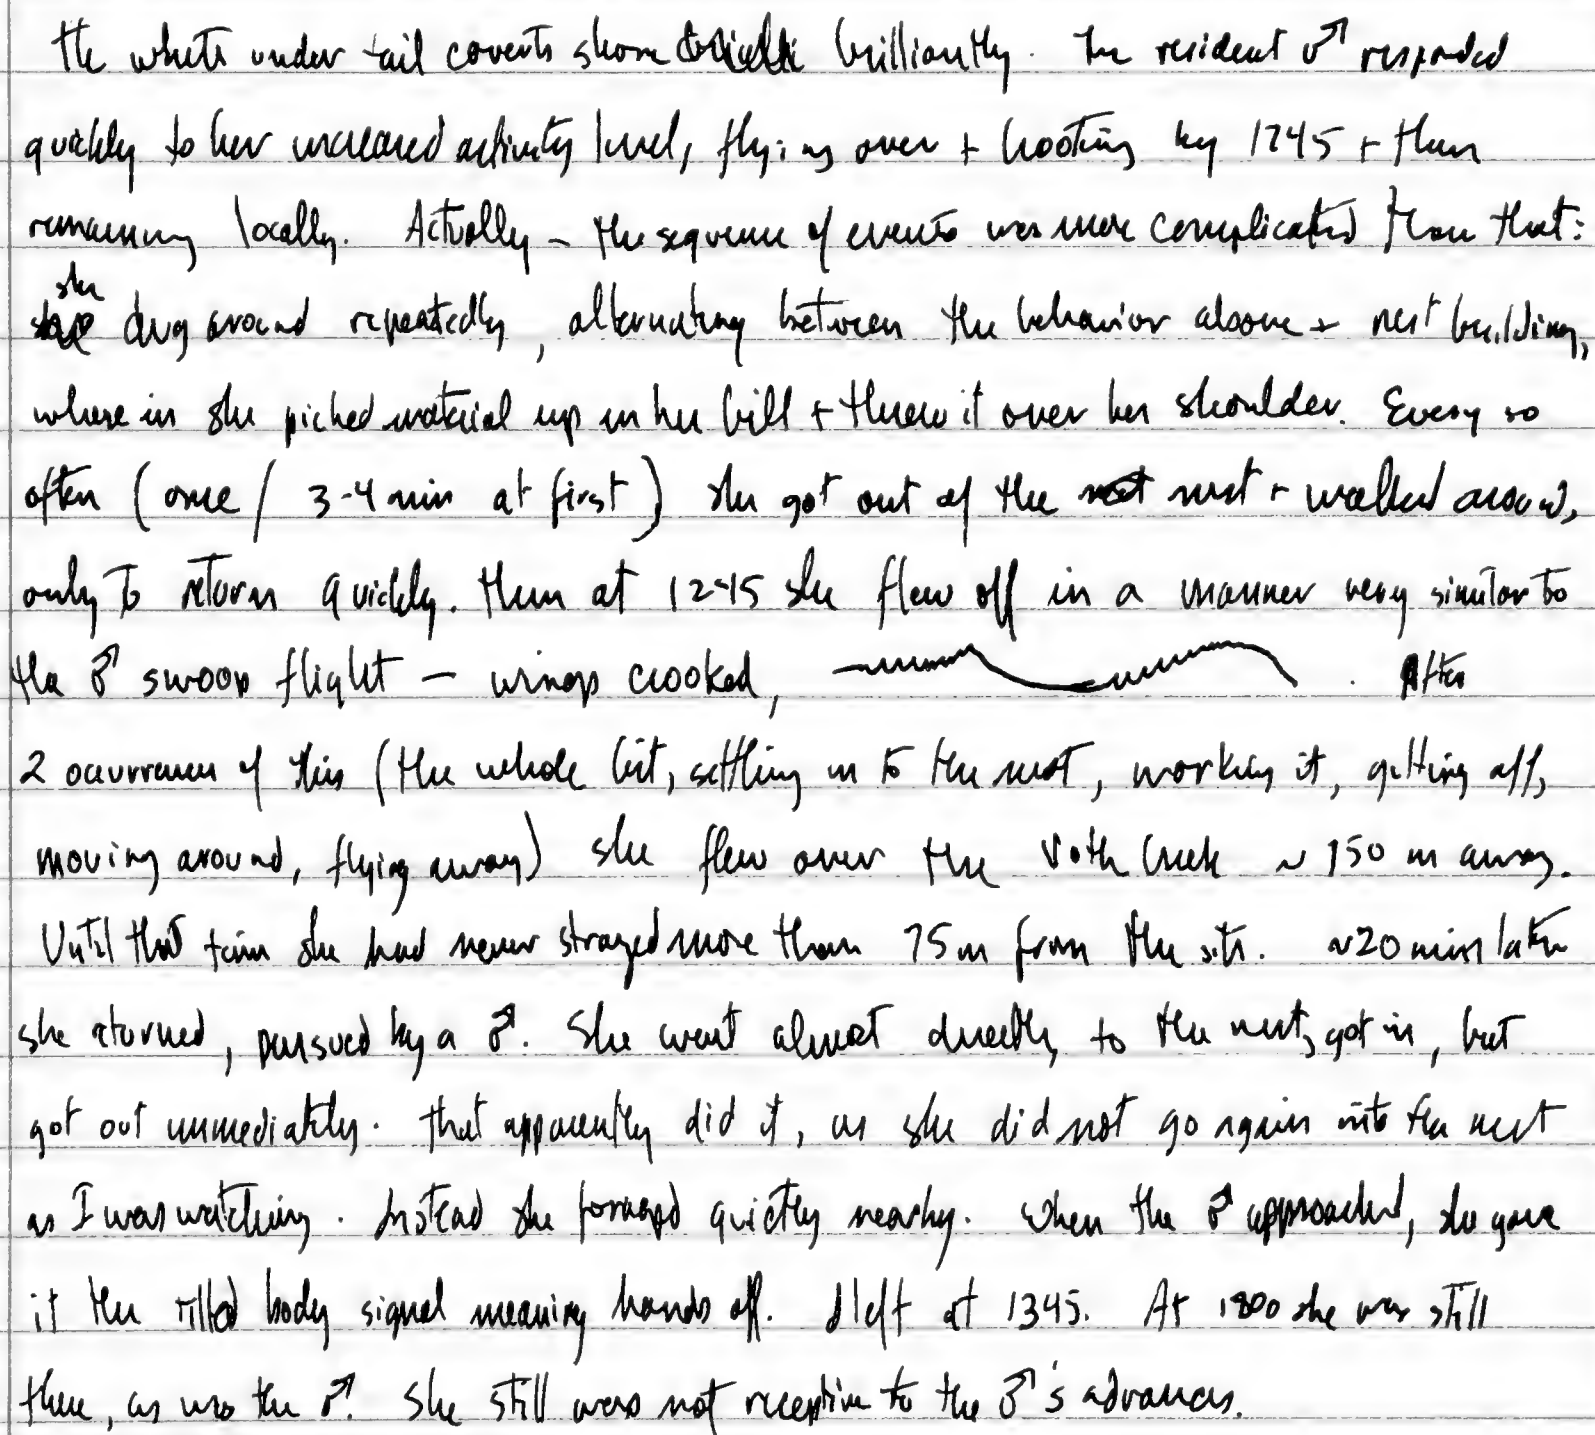 The white under tail coverts shone brilliantly. The resident ♂ responded
quickly to her increased activity level, flying over + hooting by 1245 + then
remaining locally. Actually – the sequence of events was more complicated than that:
she dug around repeatedly, alternating between the behavior above + nest building,
where in she picked material up in her bill + threw it over her shoulder. Every so
often (once / 3-4 min at first) she got out of the nest + walked around,
only to return quickly. Then at 1245 she flew off in a manner very similar to
the ♂ swoop flight – wings crooked, . After
2 ocurrences of this (the whole bit, settling in to the nest, working it, getting off,
moving around, flying away) she flew over the Creek ~ 150 m away.
Until that time she had never strayed more than 75 m from the site. ~20 mins later
she returned, pursued by a ♂. She went almost directly to the nest, got in, but
got out immediately. That apparently did it, as she did not go again into the nest
as I was watching. Instead she foraged quietly nearby. When the ♂ approached, she gave
it the tilted body signal meaning hands off. I left at 1345. At 1800 she was still
there, as was the ♂. She still was not receptive to the ♂'s advances.